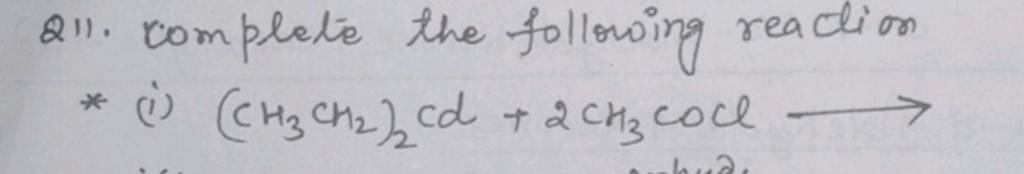 Q11. complete the following reaction
* (i) (CH₃CH₂)₂cd + 2CH₃COCl ⟶